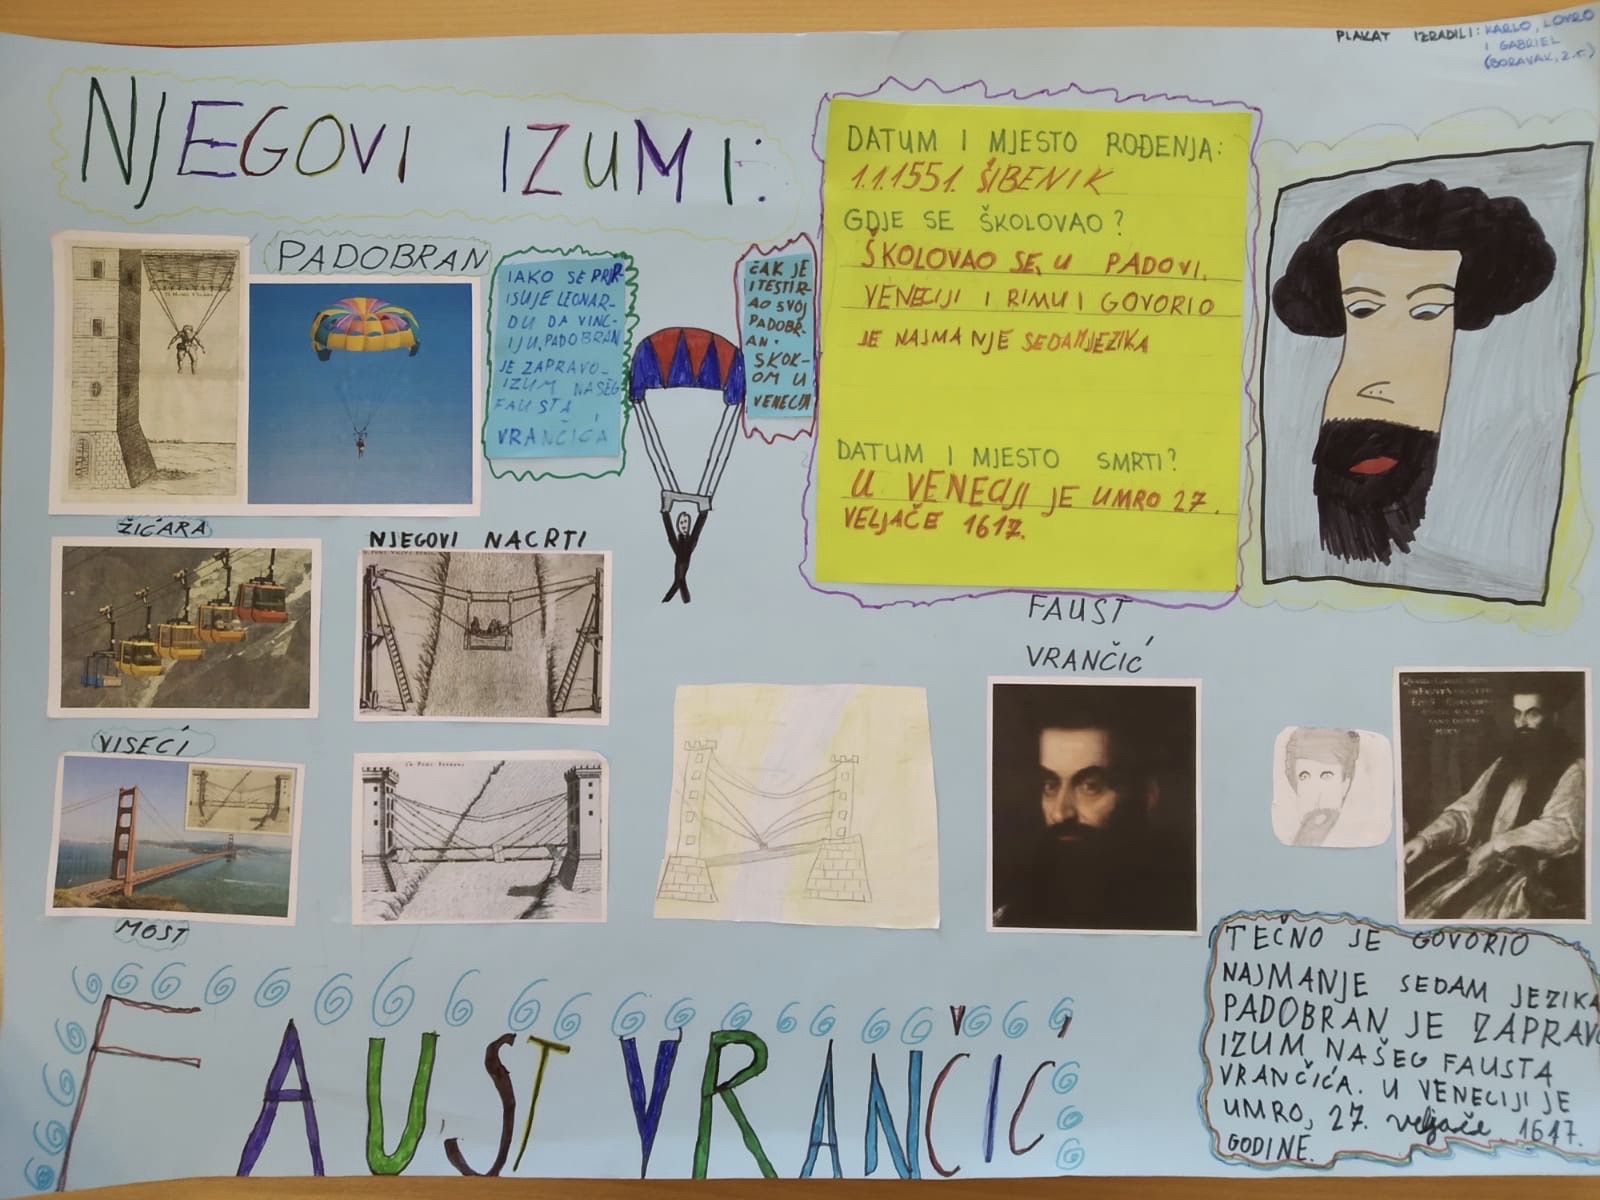 PLAKAT IZRADILI: KARLO, LOVRO
I GABRIEL
(BORAVAK, 2.C)
NJEGOVI IZUMI:
PADOBRAN
IAKO SE PRIP-
ISUJE LEONAR-
DU DA VINC-
IJU, PADOBRAN
JE ZAPRAVO
IZUM NAŠEG
FAUSTA
VRANČIĆA
ČAK JE
I TESTIR-
AO SVOJ
PADOBR-
AN.
SKOK-
OM U
VENECIJI
DATUM I MJESTO ROĐENJA:
1.1.1551. ŠIBENIK
GDJE SE ŠKOLOVAO?
ŠKOLOVAO SE, U PADOVI,
VENECIJI I RIMU I GOVORIO
JE NAJMANJE SEDAM JEZIKA
DATUM I MJESTO SMRTI?
U VENECIJI JE UMRO 27.
VELJAČE 1617.
ŽIĆARA
NJEGOVI NACRTI
VISEĆI
MOST
FAUST
VRANČIĆ
TEČNO JE GOVORIO
NAJMANJE SEDAM JEZIKA
PADOBRAN JE ZAPRAVO
IZUM NAŠEG FAUSTA
VRANČIĆA. U VENECIJI JE
UMRO, 27. veljače 1617.
GODINE.
FAUST VRANČIĆ